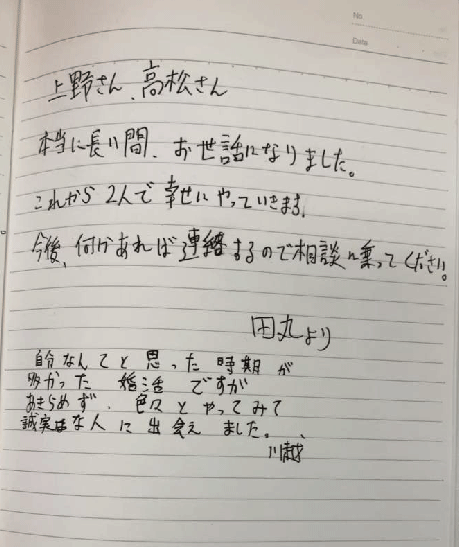 No
Date
上野さん、高松さん
本当に長い間、お世話になりました。
これから2人で幸せにやっていきます。
今後、何かあれば連絡するので相談に乗ってください。
田丸より
自分なんてと思った時期が
多かった 婚活 ですが
あきらめず、色々とやってみて
誠実な人に出会えました。
川越